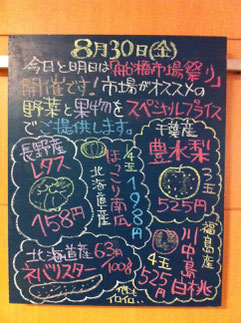 8月30日(金)
今日と明日は「船橋市場祭り」
開催です!市場がオススメの
野菜と果物をスペシャルプライス
でご提供します。
長野産
レタス
158円
北海道産
ほっこり南瓜
198円
千葉産
豊水梨
3玉
525円
北海道産
ネバリスター
63円
100g
福島産
川中島
白桃
4玉
525円